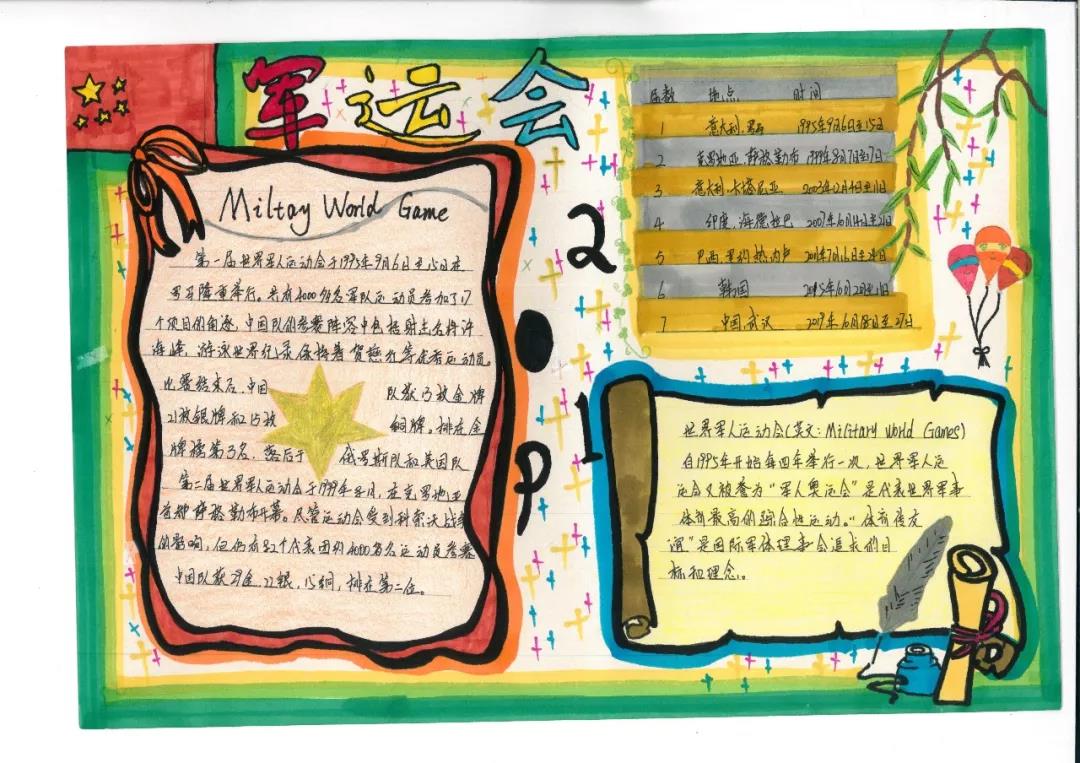 军运会
Miltay World Game
第一届世界军人运动会于1995年9月6日至15日在
罗马隆重举行。共有4000多名军队运动员参加了17
个项目的角逐,中国队的参赛阵容中包括射击名将许
海峰,游泳世界纪录保持者贺慈红等优秀运动员
比赛结束后,中国 队获13枚金牌
21枚银牌和15枚 铜牌。排在金
牌榜第3名,落后于 俄罗斯队和美国队
第二届世界军人运动会于1999年8月,在克罗地亚
首都萨格勒布开幕。尽管运动会受到科索沃战争
的影响,但仍有82个代表团的4000多名运动员参赛
中国队获 金,22银,15铜,排在第二位。
2
0
1
9
届数 地点 时间
1 意大利.罗马 1995年9月6日至15日
2 克罗地亚.萨格勒布 1999年8月7日至17日
3 意大利.卡塔尼亚 2003年12月4日至11日
4 印度.海德拉巴 2007年10月14日至21日
5 巴西.里约热内卢 2011年7月16日至24日
6 韩国 2015年10月2日至11日
7 中国.武汉 2019年10月18日至27日
世界军人运动会(英文:Military World Games)
自1995年开始每四年举行一次,世界军人运
运会又被誉为"军人奥运会"是代表世界军事
体育最高的综合性运动。"体育传友
谊"是国际军体理事会追求的目
标和理念。